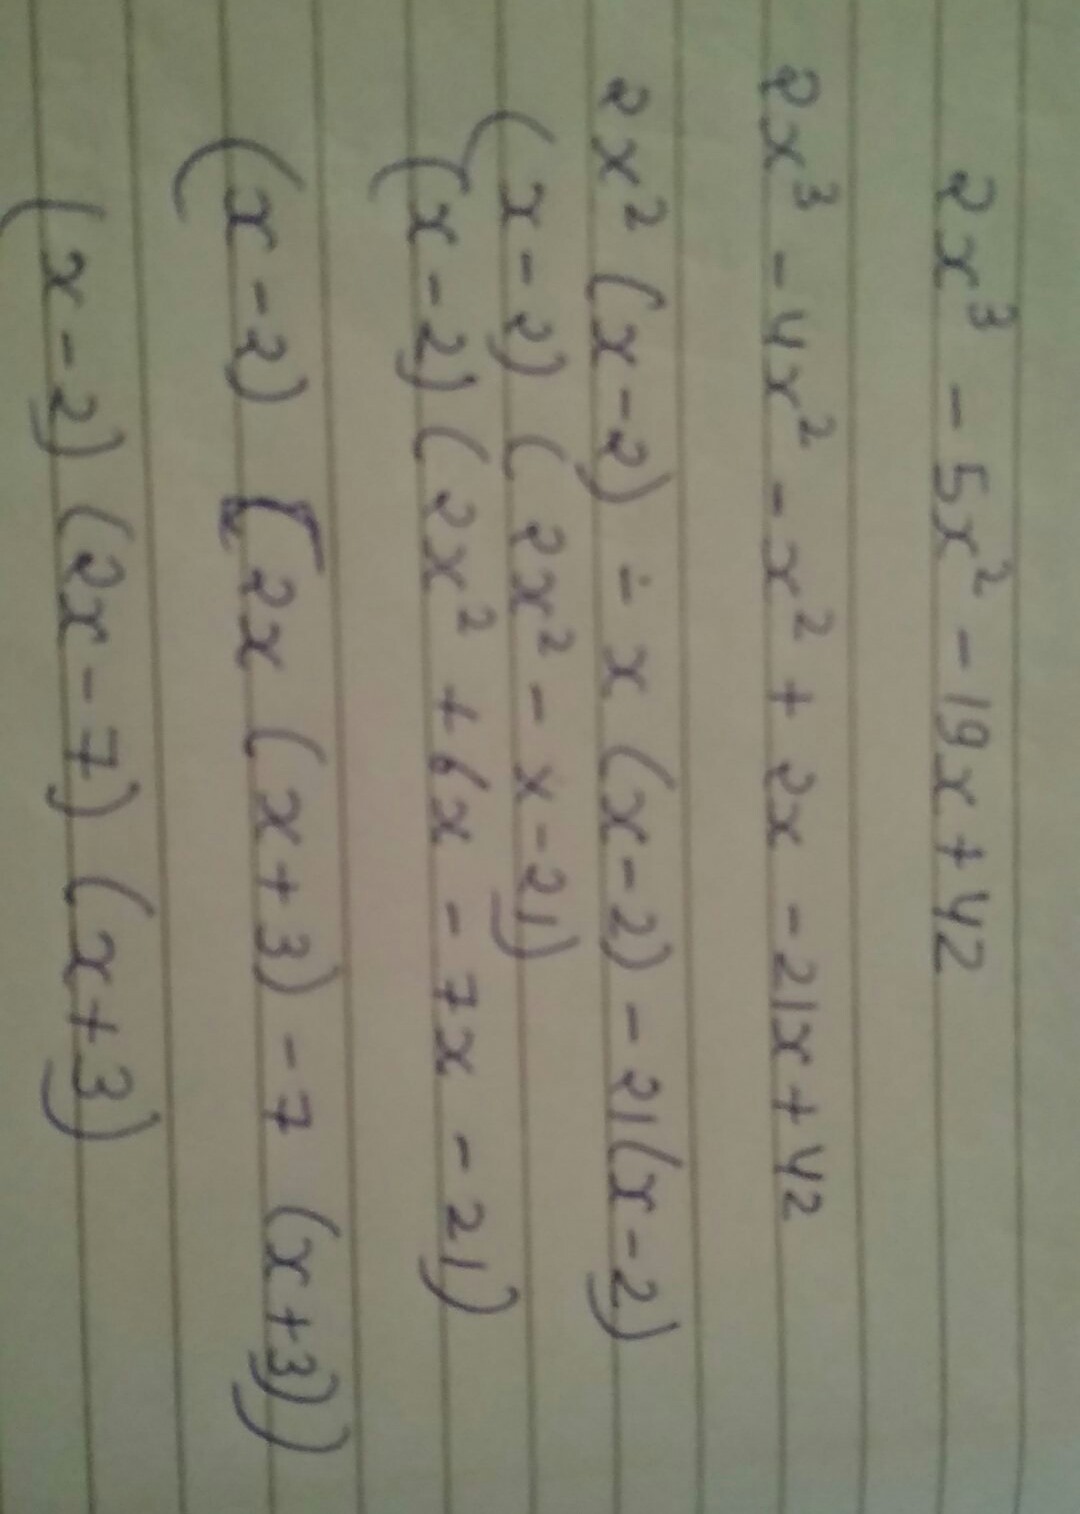 2x³ - 5x² - 19x + 42
2x³ - 4x² - x² + 2x - 21x + 42
2x² (x-2) - x (x-2) - 21(x-2)
(x-2) (2x² - x - 21)
(x-2) (2x² + 6x - 7x - 21)
(x-2) (2x (x+3) - 7 (x+3))
(x-2) (2x-7) (x+3)